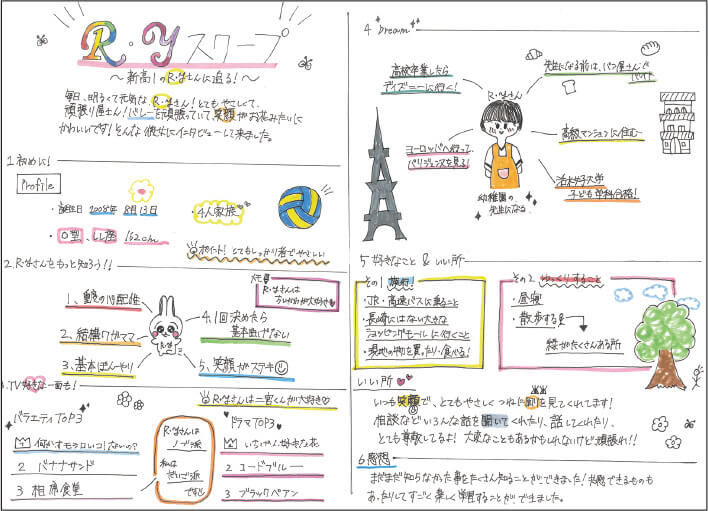 R・Yスクープ
～新高1のR・Yさんに迫る！～
毎日、明るくて元気なR・Yさん！とてもやさしくて、
頑張り屋さん！バレーを頑張っていて、笑顔がお花みたいに
かわいいです！そんな彼女にインタビューして来ました。
1. 初めに！
Profile
・誕生日 2008年 8月13日
・4人家族
・O型、しし座 162cm
ポイント！とてもしっかり者でやさしい
2. R・Yさんをもっと知ろう！！
R・Yさんは
1、動物の心配性
2、結構ワガママ
3、基本ぼんやり
4、1回決めたら
基本曲げない
5、笑顔がステキ
R・Y
TV好きな一面も！
R・Yさんは二宮くんが大好き
バラエティTOP3
1 何かオモシロいコトないの？
2 バナナサンド
3 相席食堂
R・Yさんは
私は
です
ドラマTOP3
いちばん好きな花
2 コードブルー
3 ブラックペアン
4 "Dream"
高校卒業したら
ディズニーに行く！
先生になる前は、パン屋さんで
バイト
R・Yさん
ヨーロッパへ行って、
パリジェンヌを見る！
高級マンションに住む
幼稚園の
先生になる
活水女子大学
子ども学科合格！
5 好きなこと & いい所
その1 旅行！
・JR・高速バスに乗ること
・長崎にはない大きな
ショッピングモールに行くこと
・現地の物を買ったり・食べる！
その2 ゆっくりすること
・昼寝
・散歩する
緑がたくさんある所
いい所
いつも笑顔で、とてもやさしくつねに周りを見てくれてます！
相談などいろんな話を聞いてくれたり、話してくれたり、
とても尊敬してるよ！大変なこともあるかもしれないけど頑張れ！！
6 感想
まだまだ知らなかった事をたくさん知ることができました！共感できるものも
あったりしてすごく楽しく学習することができました。